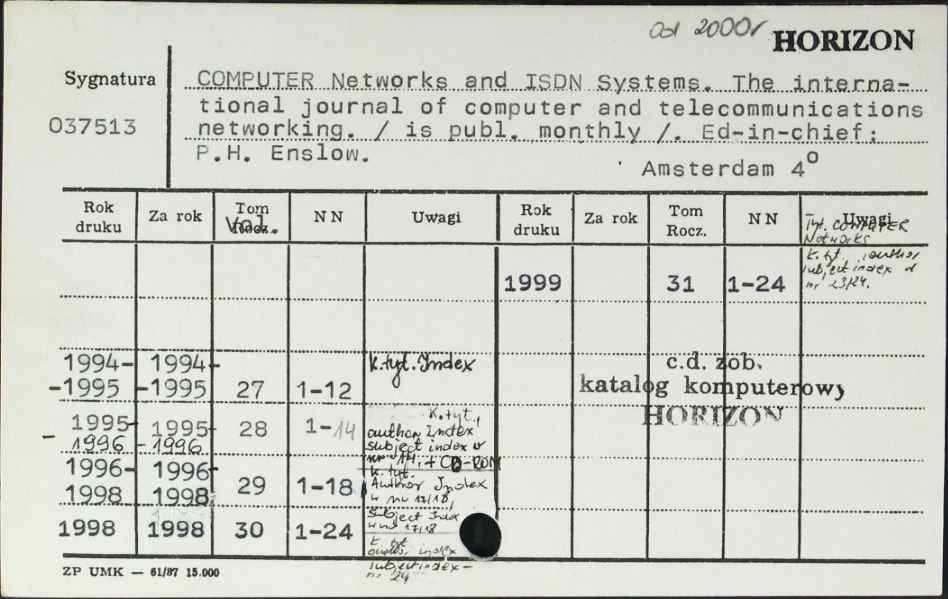 Od 2000r HORIZON
Sygnatura
037513
COMPUTER Networks and ISDN Systems. The interna-
tional journal of computer and telecommunications
networking. / is publ. monthly /. Ed-in-chief:
P.H. Enslow.
Amsterdam 4°
Rok druku Za rok Tom Rocz. Vol. NN Uwagi Rok druku Za rok Tom Rocz. NN Uwagi
Tyt. COMPUTER
Networks
1999 31 1-24 K. tyt. author
subject index w
nr 23/24.
1994- 1994- K. tyt. Index
-1995 -1995 27 1-12
c.d. zob.
katalog komputerowy
HORIZON
1995- 1995- 28 1-14 K. tyt.,
-1996 -1996 author Index
subject index w
nr 14. + CD-ROM
1996- 1996- 29 1-18 K. tyt.
1998 1998 Author Index
w nr 17/18,
Subject Index
w nr 17/18
1998 1998 30 1-24 K. tyt.
author index
subject index -
nr 24
ZP UMK — 61/87 15.000